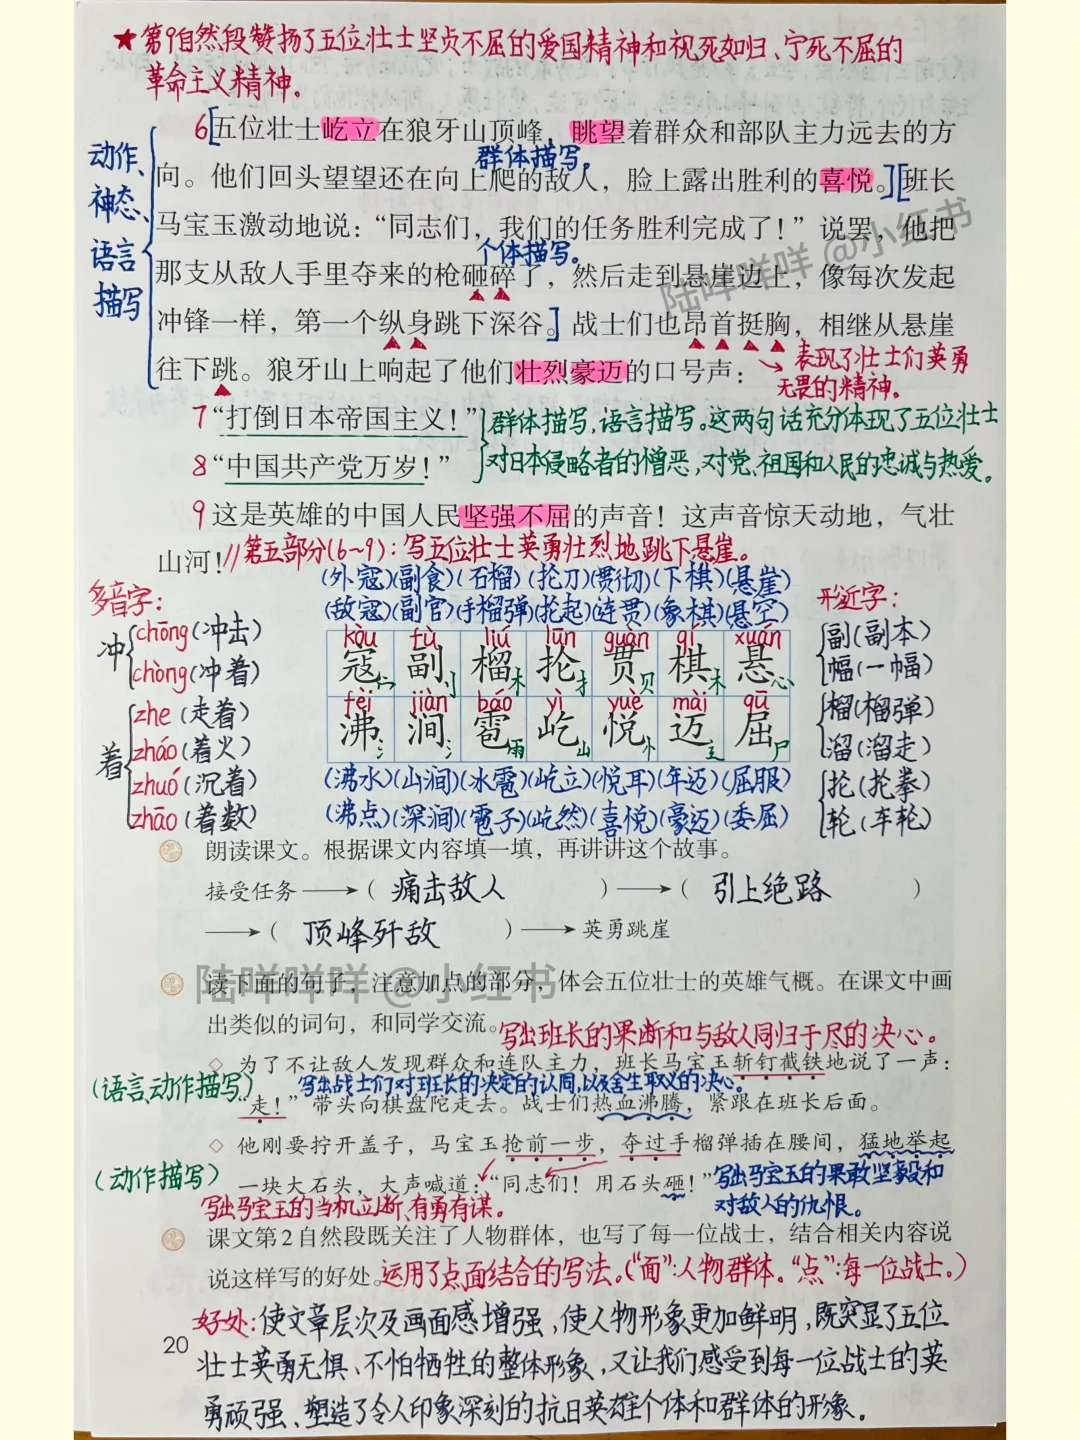 ★第9自然段赞扬了五位壮士坚贞不屈的爱国精神和视死如归、宁死不屈的
革命主义精神。
动作、
神态、
语言
描写
6[五位壮士屹立在狼牙山顶峰，眺望着群众和部队主力远去的方
群体描写。
向。他们回头望望还在向上爬的敌人，脸上露出胜利的喜悦。][班长
马宝玉激动地说：“同志们，我们的任务胜利完成了！”说罢，他把
个体描写。
那支从敌人手里夺来的枪砸碎了，然后走到悬崖边上，像每次发起
冲锋一样，第一个纵身跳下深谷。]战士们也昂首挺胸，相继从悬崖
往下跳。狼牙山上响起了他们壮烈豪迈的口号声：
→表现了壮士们英勇
无畏的精神。
7“打倒日本帝国主义！”
8“中国共产党万岁！”
群体描写，语言描写。这两句话充分体现了五位壮士
对日本侵略者的憎恶，对党、祖国和人民的忠诚与热爱。
9这是英雄的中国人民坚强不屈的声音！这声音惊天动地，气壮
山河！//第五部分(6~9)：写五位壮士英勇壮烈地跳下悬崖。
多音字：
冲
chōng(冲击)
chòng(冲着)
着
zhe(走着)
zháo(着火)
zhuó(沉着)
zhāo(着数)
(外寇)(副食)(石榴)(抡刀)(贯彻)(下棋)(悬崖)
(敌寇)(副官)(手榴弹)(抡起)(连贯)(象棋)(悬空)
kòu fù liú lūn guàn qí xuán
寇 副 榴 抡 贯 棋 悬
宀 刂 木 扌 贝 木 心
fèi jiàn báo yì yuè mài qū
沸 涧 雹 屹 悦 迈 屈
氵 氵 雨 山 忄 辶 尸
(沸水)(山涧)(冰雹)(屹立)(悦耳)(年迈)(屈服)
(沸点)(深涧)(雹子)(屹然)(喜悦)(豪迈)(委屈)
形近字：
副(副本)
幅(一幅)
榴(榴弹)
溜(溜走)
抡(抡拳)
轮(车轮)
朗读课文。根据课文内容填一填，再讲讲这个故事。
接受任务→(痛击敌人)→(引上绝路)
→(顶峰歼敌)→英勇跳崖
读下面的句子，注意加点的部分，体会五位壮士的英雄气概。在课文中画
出类似的词句，和同学交流。
写出班长的果断和与敌人同归于尽的决心。
◇为了不让敌人发现群众和连队主力，班长马宝玉斩钉截铁地说了一声：
(语言、动作描写)
写出战士们对班长的决定的认同，以及舍生取义的决心。
“走！”带头向棋盘陀走去。战士们热血沸腾，紧跟在班长后面。
◇他刚要拧开盖子，马宝玉抢前一步，夺过手榴弹插在腰间，猛地举起
(动作描写)
一块大石头，大声喊道：“同志们！用石头砸！”
写出马宝玉的当机立断、有勇有谋。
写出马宝玉的果敢坚毅和
对敌人的仇恨。
课文第2自然段既关注了人物群体，也写了每一位战士，结合相关内容说
说这样写的好处。运用了点面结合的写法。(“面”：人物群体。“点”：每一位战士。)
好处：使文章层次及画面感增强，使人物形象更加鲜明，既突显了五位
壮士英勇无惧、不怕牺牲的整体形象，又让我们感受到每一位战士的英
勇顽强、塑造了令人印象深刻的抗日英雄个体和群体的形象。
20
陆咩咩咩 @小红书
陆咩咩咩 @小红书